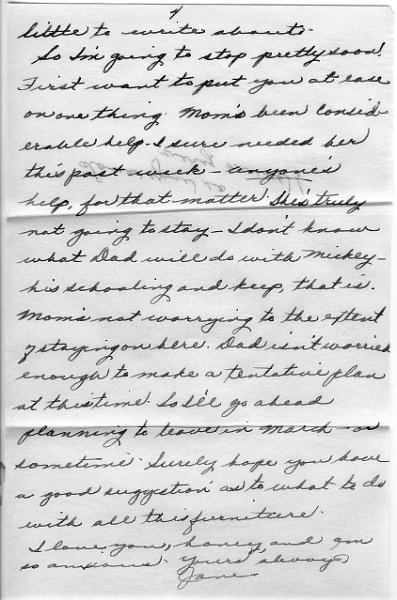 4
little to write about.
So I'm going to stop pretty soon!
First want to put you at ease
on one thing. Mom's been consid-
erable help. I sure needed her
this past week - anyone's
help, for that matter. She's truly
not going to stay - I don't know
what Dad will do with Mickey -
his schooling and keep, that is.
Mom's not worrying to the extent
of staying on here. Dad isn't worried
enough to make a tentative plan
at this time. So I'll go ahead
planning to leave in March - or
sometime. Surely hope you have
a good suggestion as to what to do
with all this furniture.
I love you, honey, and am
so anxious. Yours always
Jane